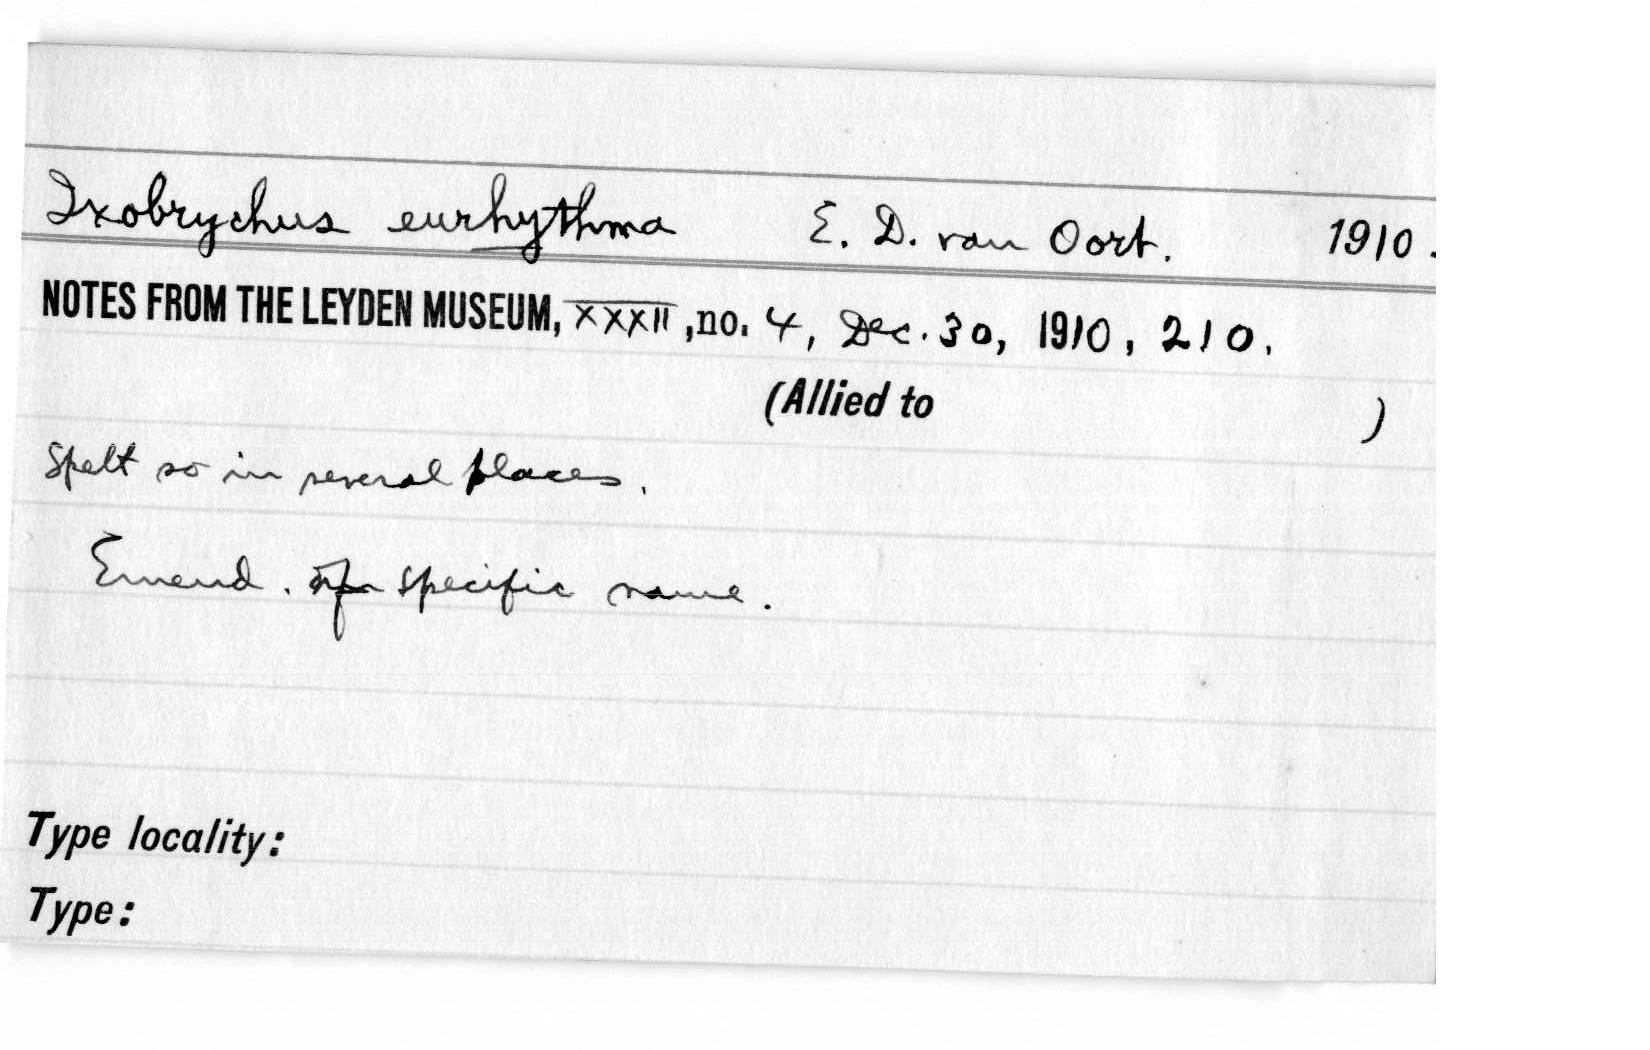 Ixobrychus eurhythma E. D. van Oort. 1910.
NOTES FROM THE LEYDEN MUSEUM, XXXII, no. 4, Dec. 30, 1910, 210.
(Allied to )
Spelt so in several places.
Emend. of specific name.
Type locality:
Type: